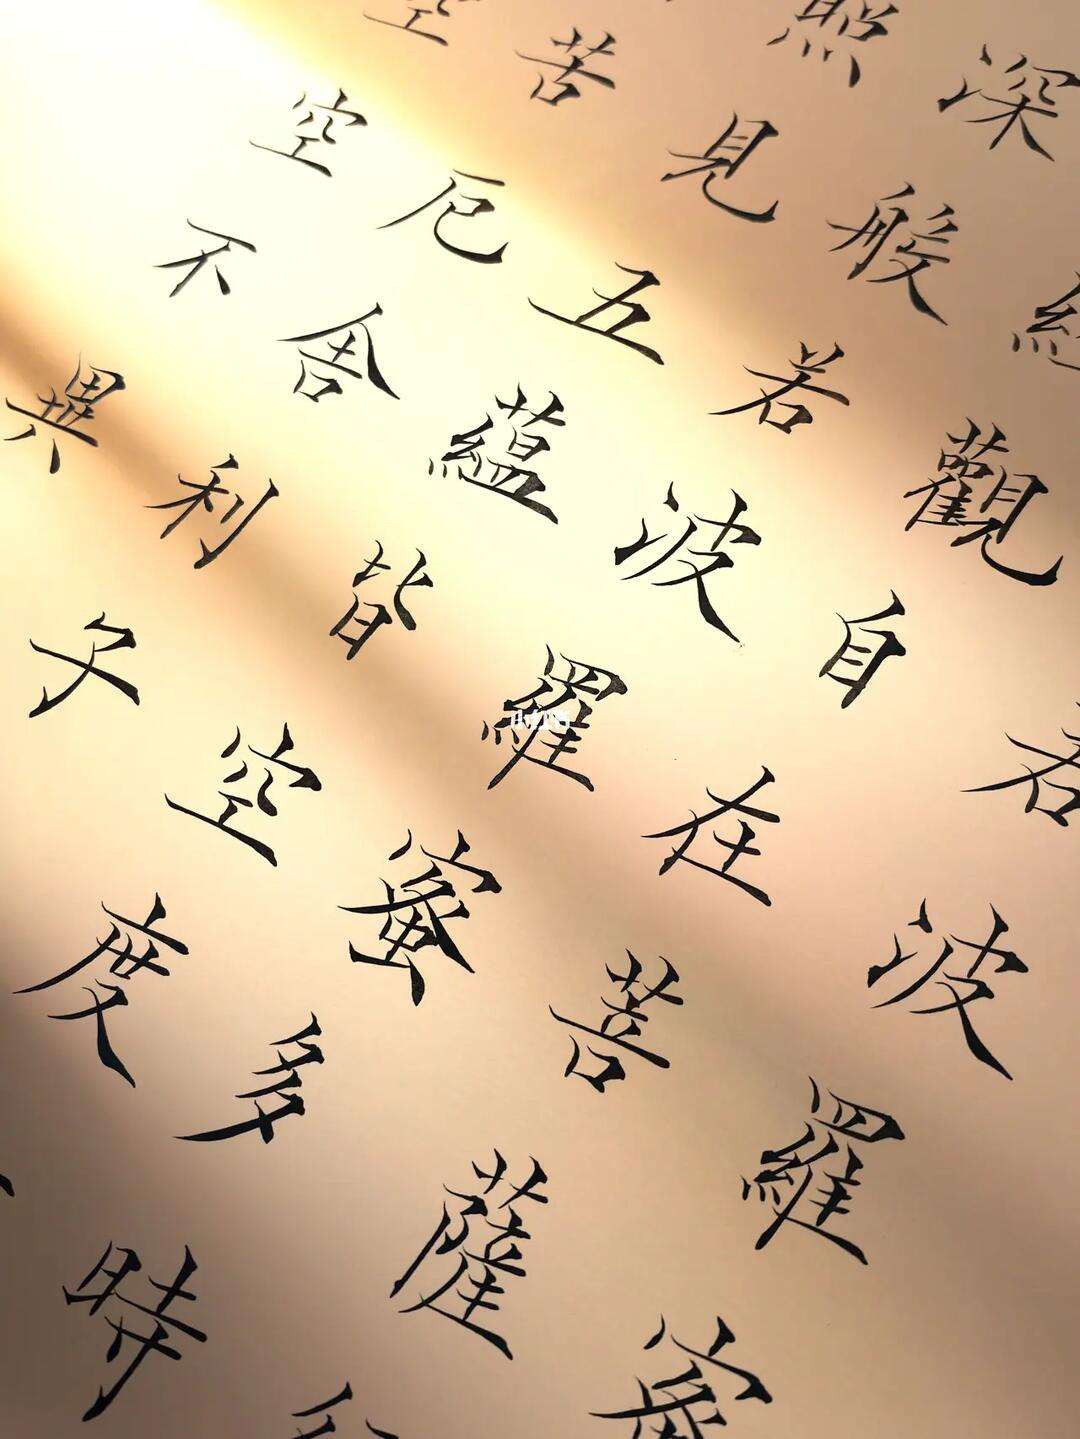 若波羅蜜
經觀自在菩薩行
深般若波羅蜜多時
照見五蘊皆空度
苦厄舍利子
空空不異